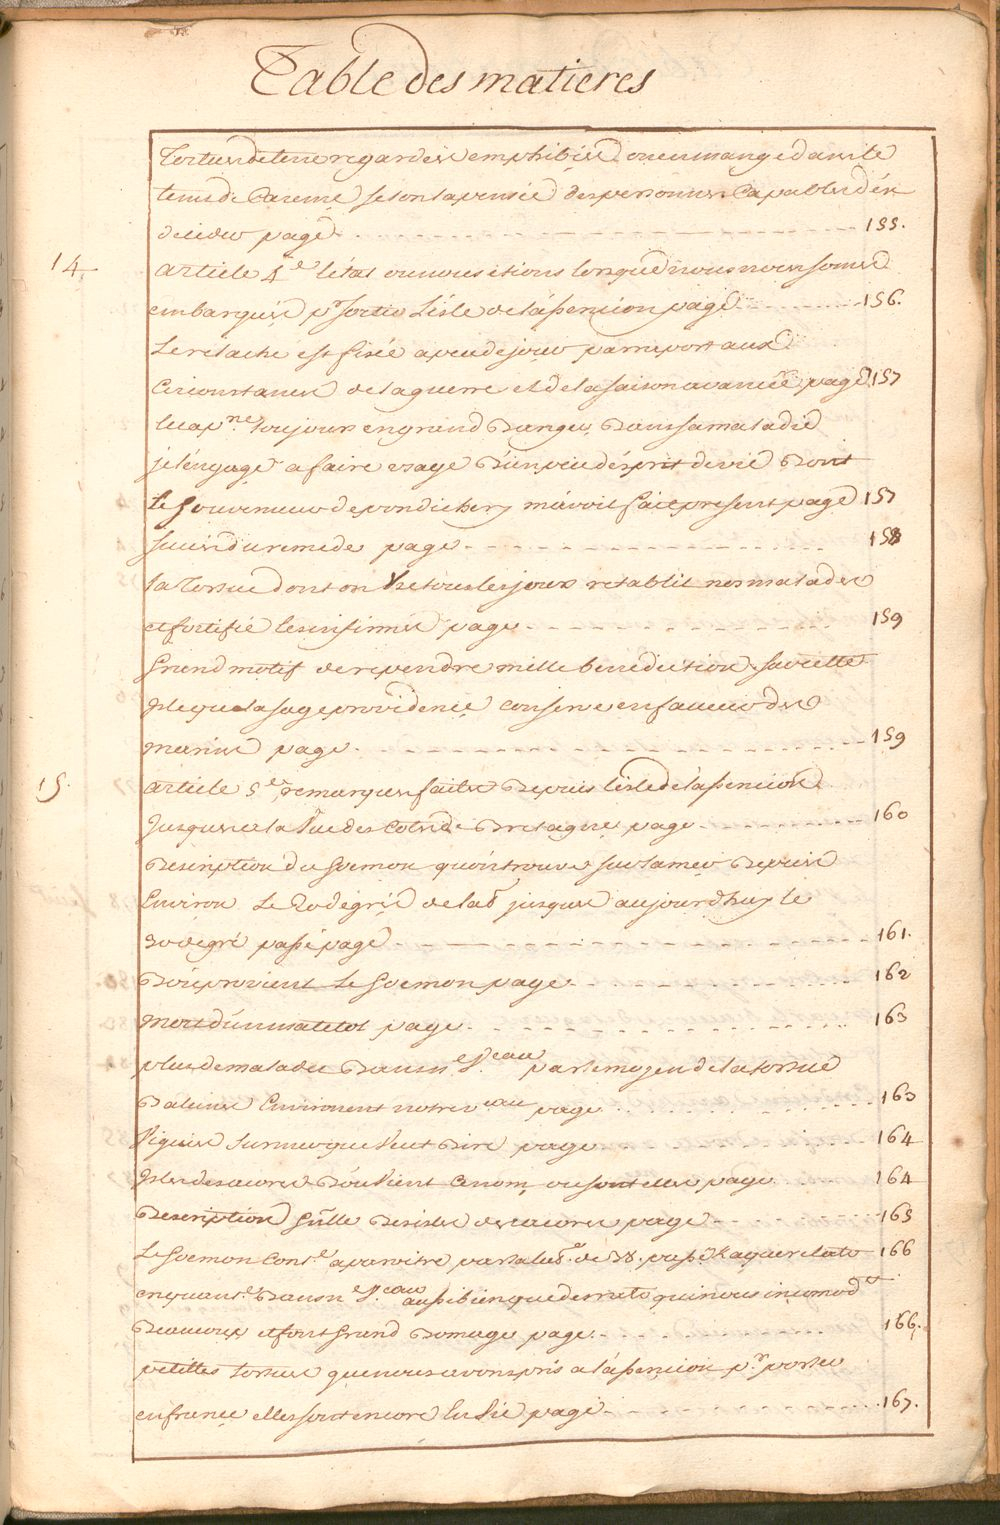 Table des matieres
Tortues de terre regardées emphibies, on en mange dans le
tems de Careme selon la pensée des personnes Capables d'en
decider page 155.
14.
article 4e l'état ou nous etions lorsque nous nous somes
embarqués pr sortir L'isle de l'assencion page 156.
Le relache est fixée a peu de jour par raport aux
Circonstances de la guerre et de la saison avancée, page 157
le capne toujours en grand Danger Dans sa maladie
je l'engage a faire usage D'un peu d'esprit de vie Dont
Le Gouverneur de pondichery m'avoit fait present page 157
suces du remede page 158
La Tortue dont on Vse tous les jours retablit nos malades
et fortifie les infirmes page 159
Grand motif de rependre mille benediction sur cette
Isle que la sage providence conserve en faveur des
marins page 159
15.
article 5e, remarques faites Depuis l'isle de l'assencion
Jusques a la Vue des Cotes De Bretagne page 160
Description du Goemon qu'on trouve sur la mer Depuis
Environ Le 20 degrés de latd jusques aujourd'huy le
30 degré passé page 161.
D'ou provient Le Goemon page 162
Mort d'un matelot page 163
plus de malades Dans n.e V.eau par le moyen de la tortue
Baleines Environent notre Veau page 163
Vigies sur mer que Veut Dire page 164
Isles des acores D'ou Vient ce nom, ou sont elles page 164
Description Gnlle Des isles des acores page 165
Le Goemon conte a paroitre par la latde de 38. passé 166
en quante Dans n.e V.eau aussi bien que de rats qui nous incomodt
Beaucoup et font Grand Domage page 166.
petittes tortues que nous avons pris a l'assencion pr porter
en france elles sont encore En Vie page 167.